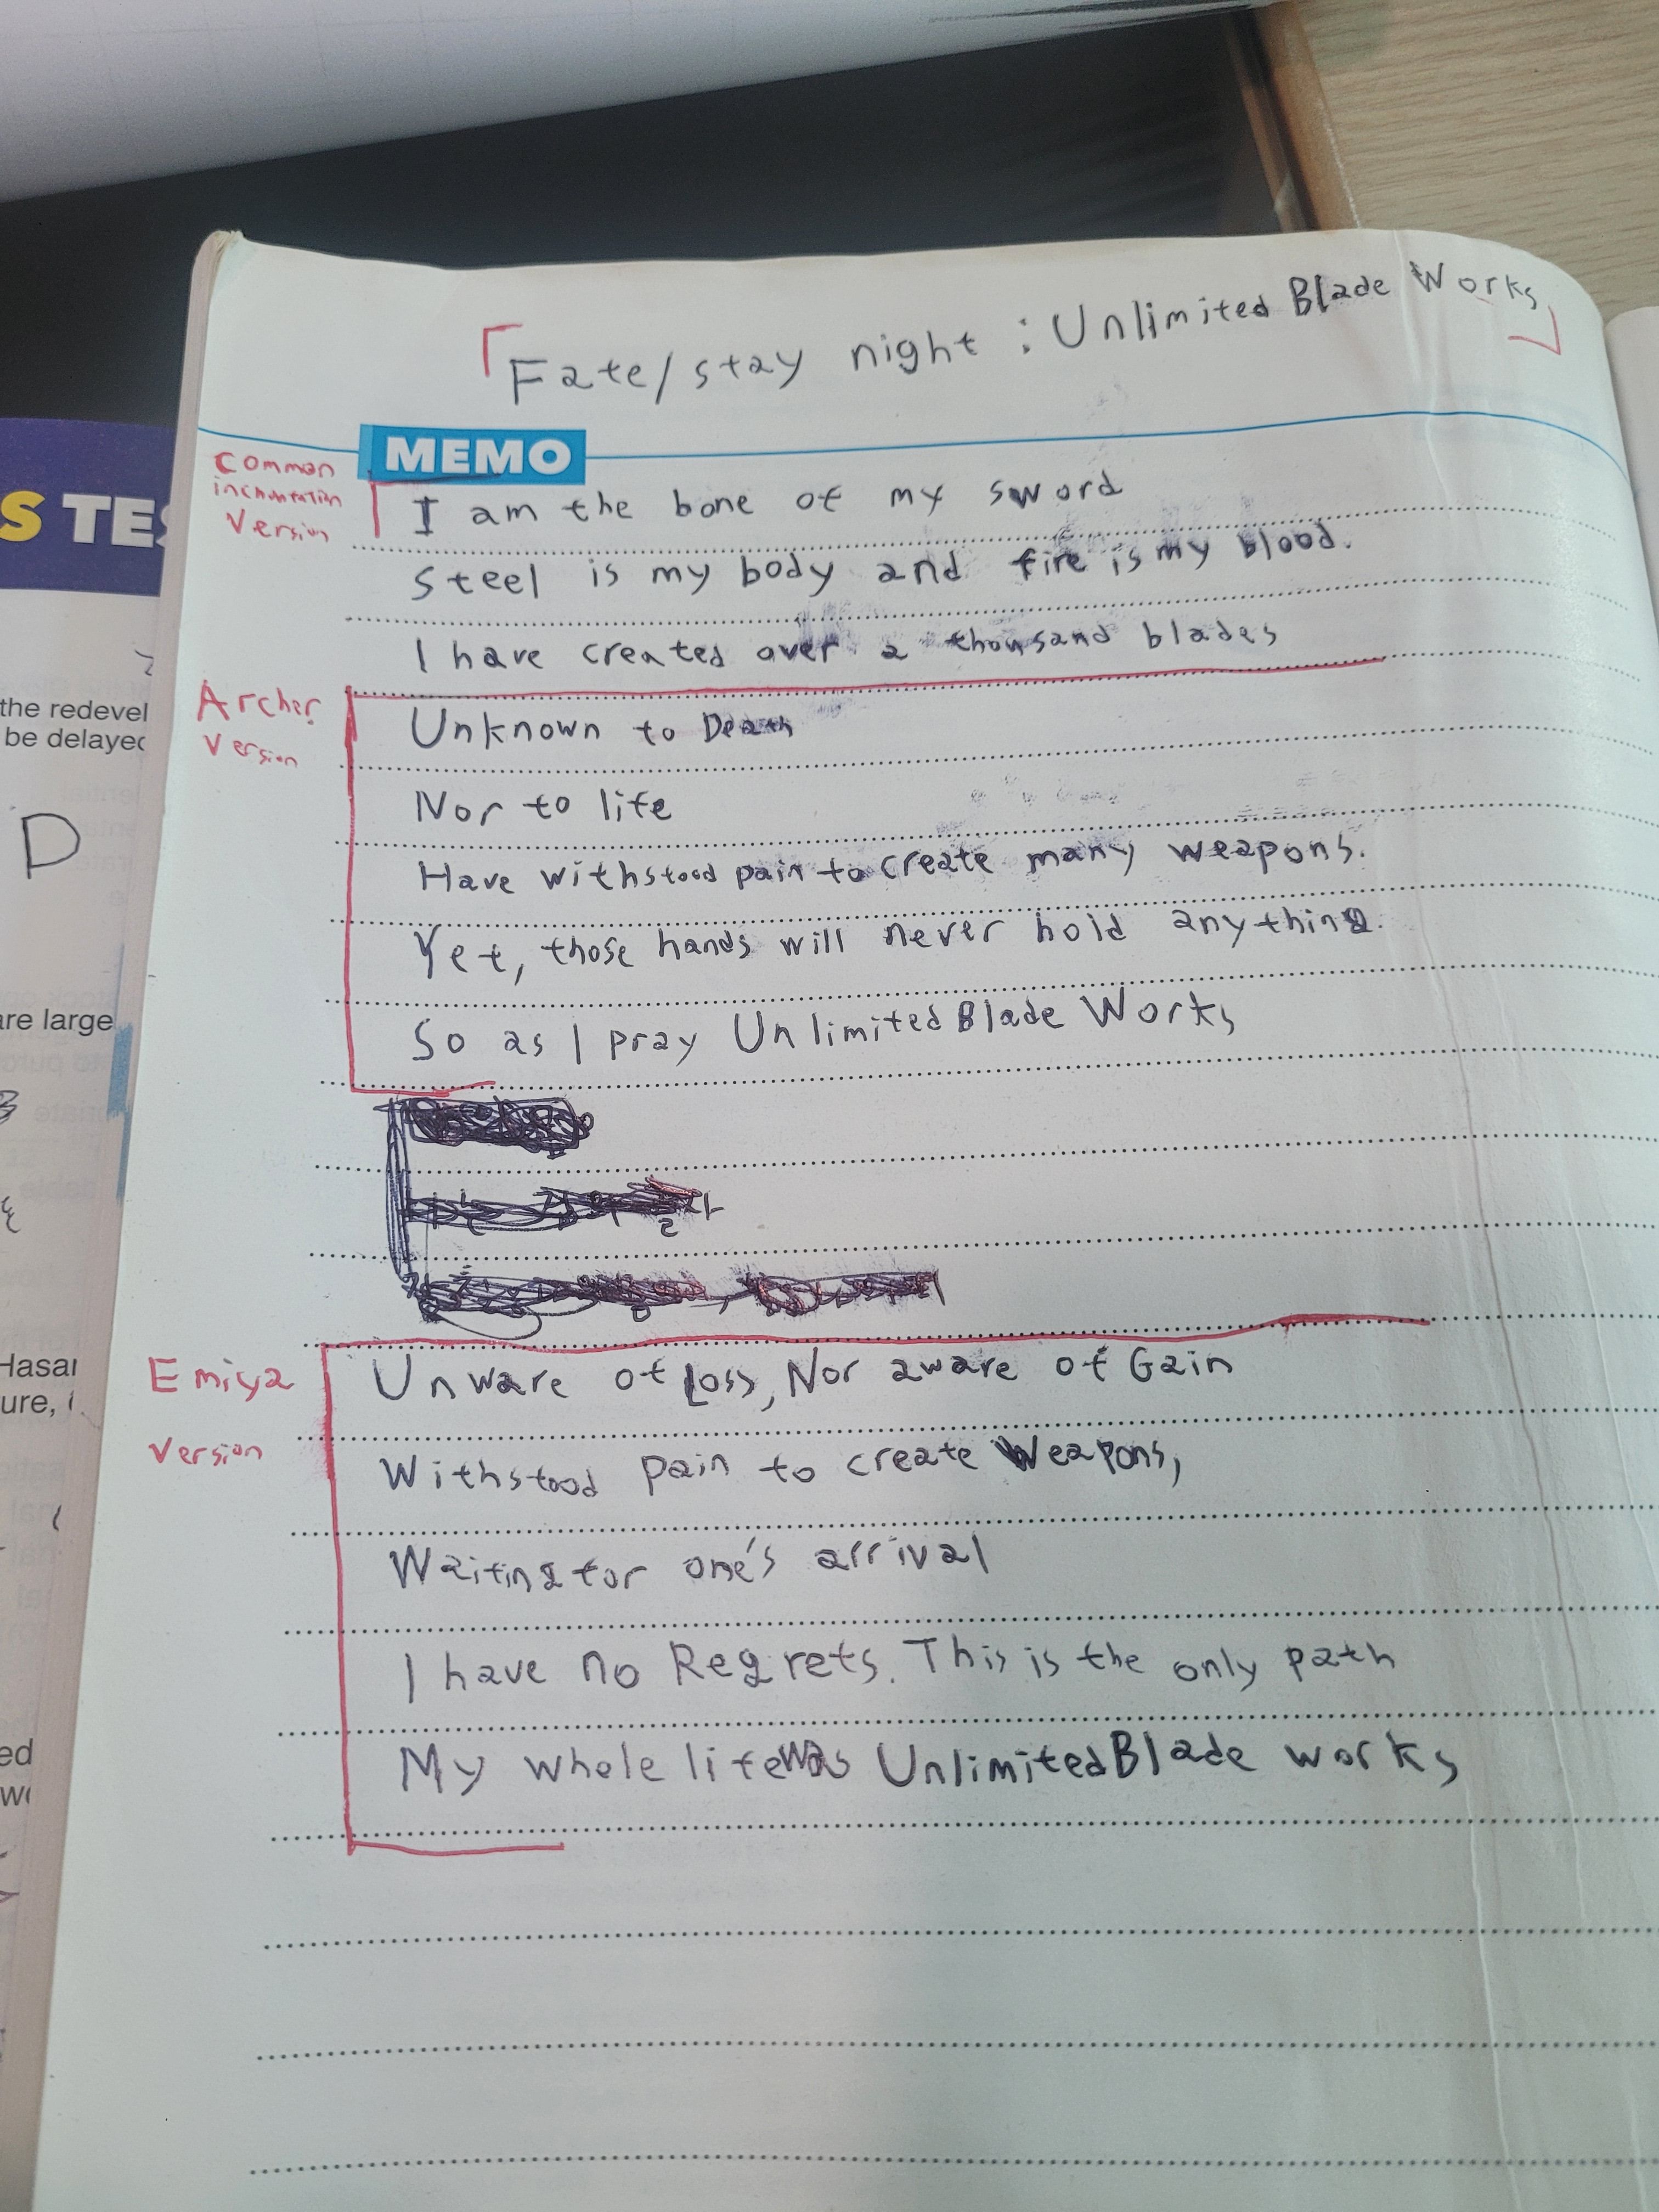 「Fate/stay night : Unlimited Blade Works」
MEMO
Common
incantation
Version
I am the bone of my sword
Steel is my body and fire is my blood.
I have created over a thousand blades
Archer
Version
Unknown to Death
Nor to life
Have withstood pain to create many weapons.
Yet, those hands will never hold anything.
So as I pray Unlimited Blade Works
Emiya
Version
Unware of Loss, Nor aware of Gain
Withstood pain to create Weapons,
Waiting for one's arrival
I have no Regrets. This is the only path
My whole life was Unlimited Blade works
S TES
the redevel
be delayed
D
are large
Hasa
ure,
ed